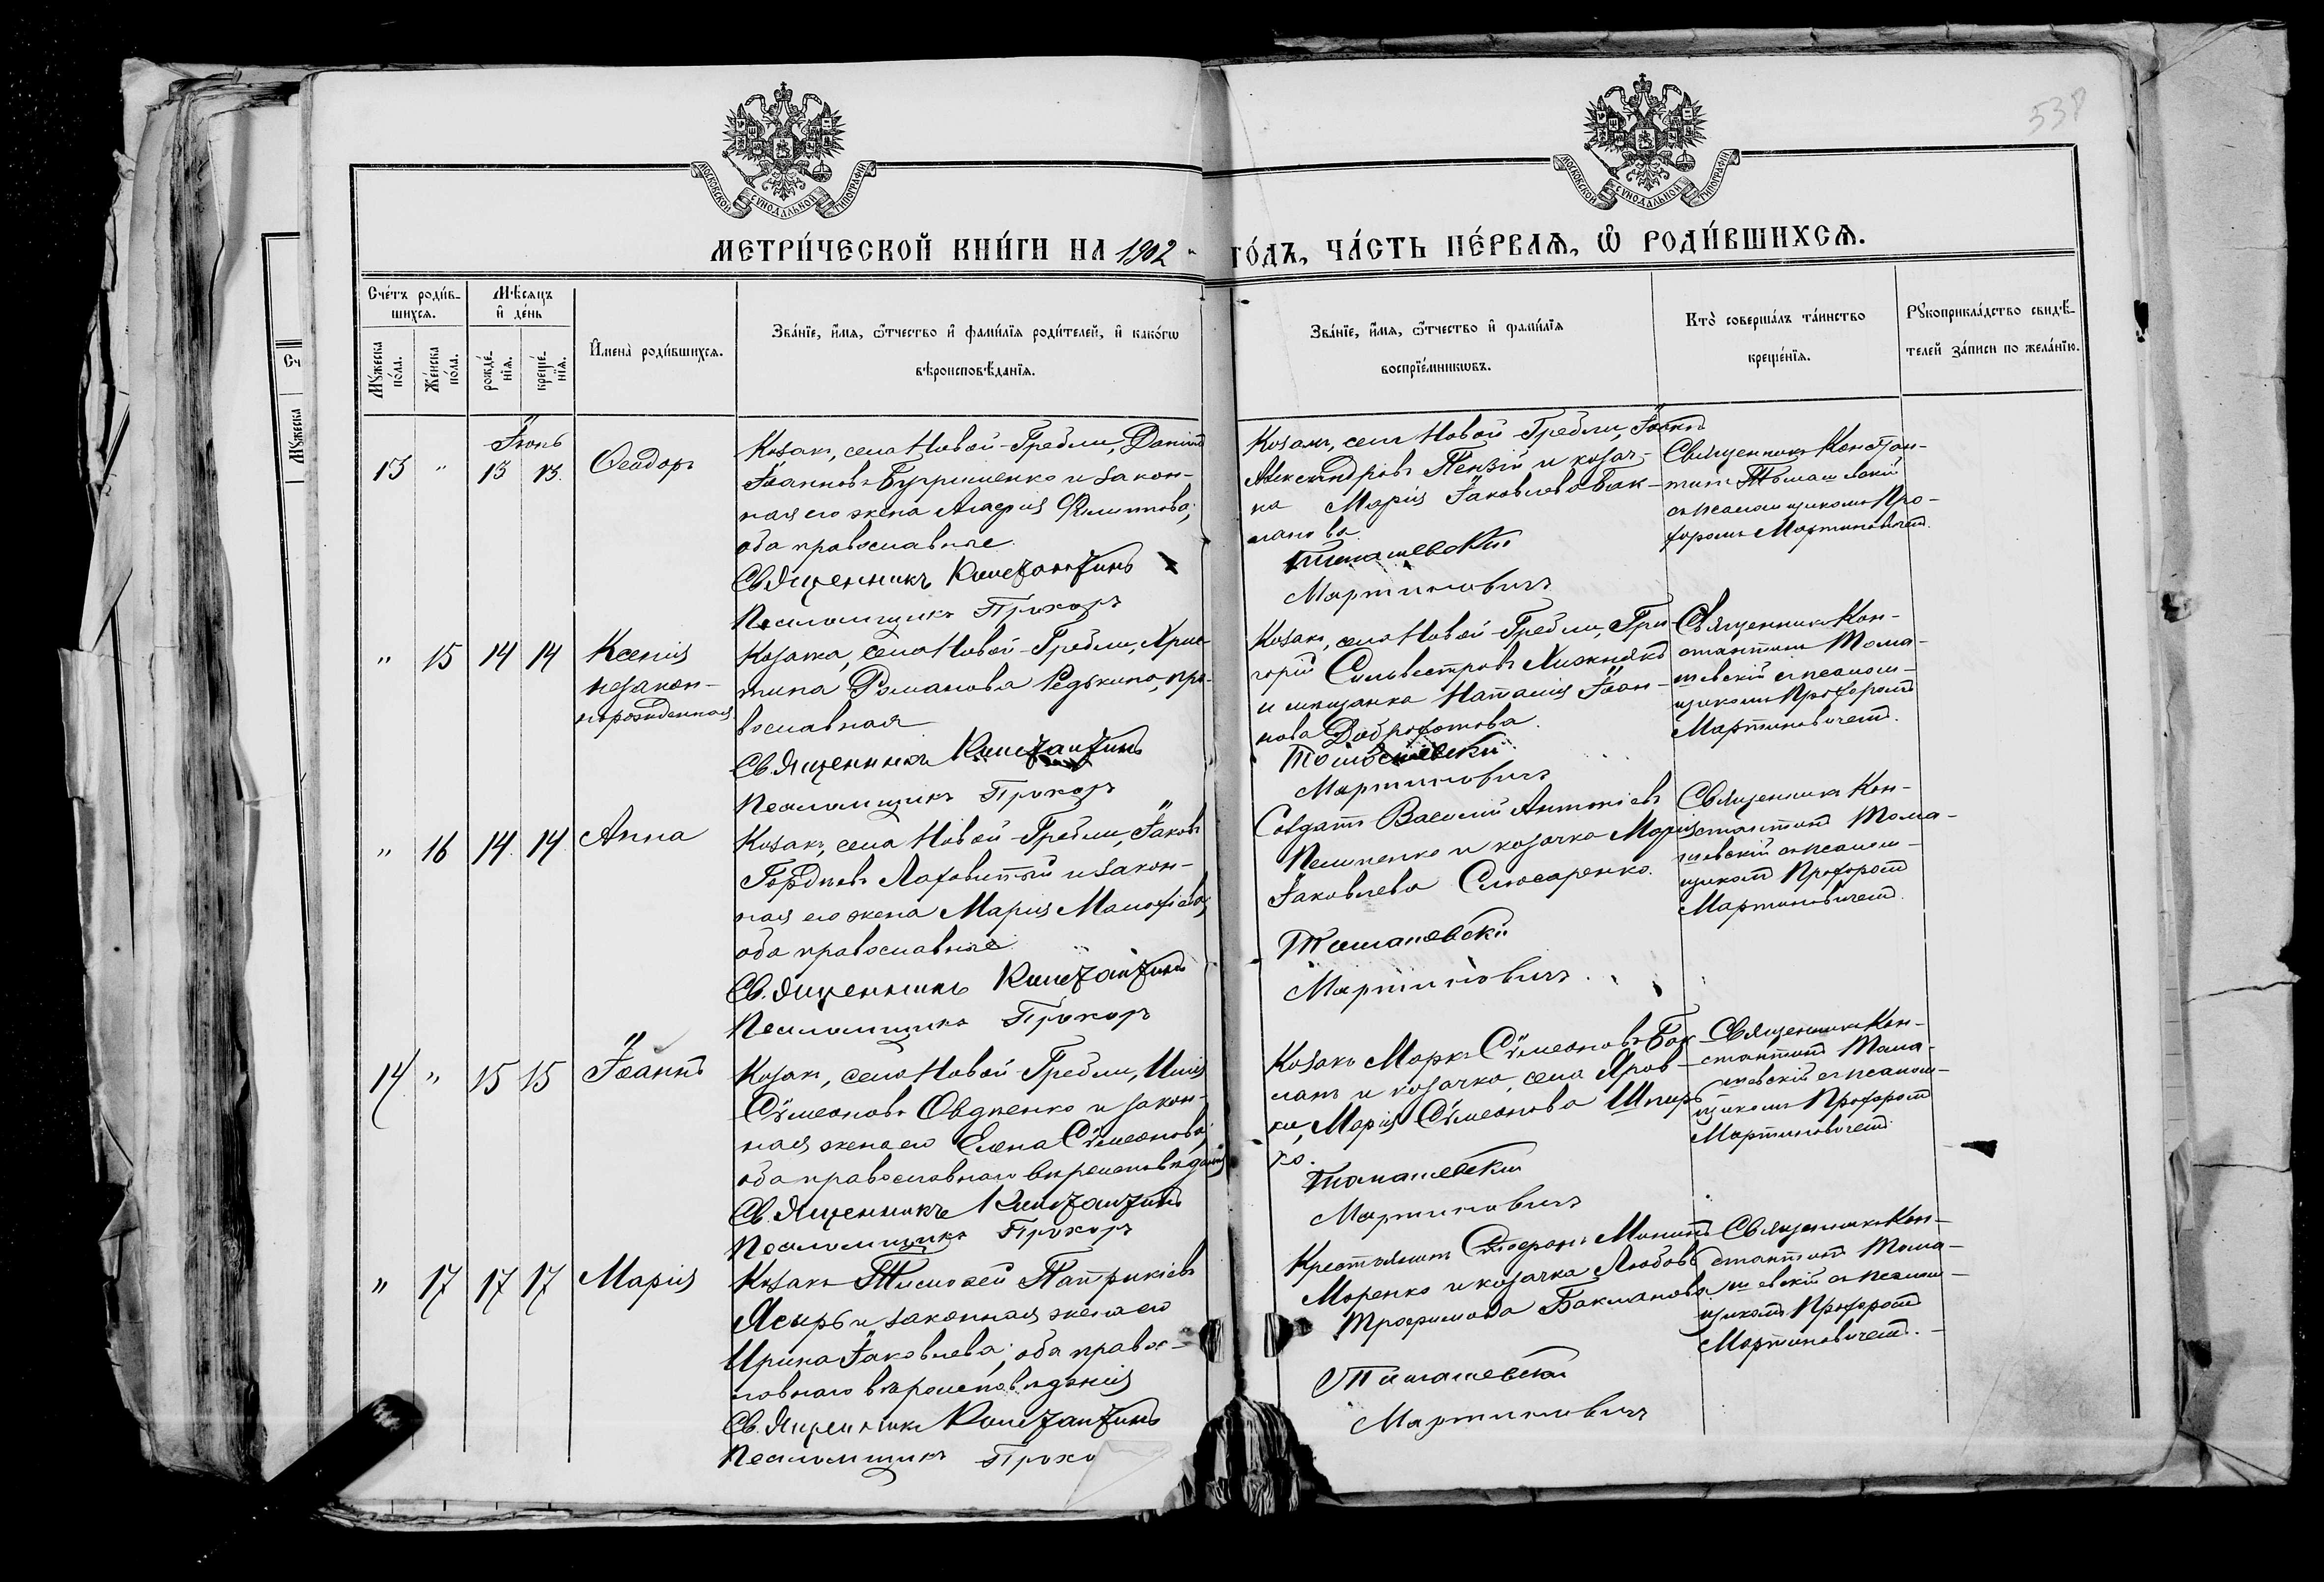 МОСКОВСКОЙ СѴНОДАЛЬНОЙ ТИПОГРАФІИ
МОСКОВСКОЙ СѴНОДАЛЬНОЙ ТИПОГРАФІИ
538
МЕТРИ́ЧЕСКОЙ КНИ́ГИ НА 1902 ГО́ДЪ, ЧА́СТЬ ПЕ́РВАѦ, Ѡ҆ РОДИ́ВШИХСѦ.
Сче́тъ роди́в-
шихсѧ.
Мꙋ́жеска по́ла.
Же́нска по́ла.
Мѣ́сѧцъ и҆ де́нь
рожде́-нїѧ.
креще́-нїѧ.
И҆мена̀ роди́вшихсѧ.
Зва́нїе, и҆́мѧ, ѻ҆́тчество и҆ фами́лїѧ роди́телей, и҆ како́гѡ
вѣроисповѣ́данїѧ.
Зва́нїе, и҆́мѧ, ѻ҆́тчество и҆ фами́лїѧ
воспрїе́мникѡвъ.
Кто̀ соверша́лъ та́инство
креще́нїѧ.
Рꙋкоприкла́дство свидѣ́-
телей за́писи по жела́нїю.
Сч
Мꙋжеска
Іюнь
13 " 13 13. Ѳеодоръ
Козакъ, села Новой-Гребли, Даніилъ
Іоанновъ и закон-
ная его жена Агафія Филиппова;
оба православные.
Священникъ Константинъ
Псаломщикъ Прохоръ
Козакъ, села Новой-Гребли, Іоаннъ
Александровъ Пензій и козач-
ка Марія Іаковлева Бак-
ланова.
Томашевскій
Мартиновичъ
Священникъ Констан-
тинъ Томашевскій
съ псаломщикомъ Про-
хоромъ Мартиновичемъ.
" 15 14 14 Ксенія
незакон-
норожденная
Козачка, села Новой-Гребли, Хрис-
тина Романова Редькина, пра-
вославная
Священникъ Константинъ
Псаломщикъ Прохоръ
Козакъ, села Новой-Гребли, Гри-
горій Сильвестровъ Хижнякъ
и мещанка Наталія Іоан-
нова Доброхотова.
Томашевскій
Мартиновичъ
Священникъ Кон-
стантинъ Тома-
шевскій съ псалом-
щикомъ Прохоромъ
Мартиновичемъ.
" 16 14. 14. Анна
Козакъ, села Новой-Гребли, Іаковъ
Гордіевъ и закон-
ная его жена Марія
оба православные.
Священникъ Константинъ
Псаломщикъ Прохоръ
Солдатъ Василій Антоніевъ
и козачка Марія
Іаковлева Слюсаренко.
Томашевскій
Мартиновичъ.
Священникъ Кон-
стантинъ Тома-
шевскій съ псалом-
щикомъ Прохоромъ
Мартиновичемъ.
14 " 15 15 Іоаннъ
Козакъ, села Новой-Гребли, Илія
Сѵмеоновъ Овдіенко и закон-
ная жена его Елена Сѵмеонова;
оба православнаго вероисповѣданія
Священникъ Константинъ
Псаломщикъ Прохоръ
Козакъ Маркъ Сѵмеоновъ Бак-
ланъ и козачка, села Яров-
ки, Марія Сѵмеонова
ко.
Томашевскій
Мартиновичъ
Священникъ Кон-
стантинъ Тома-
шевскій съ псалом-
щикомъ Прохоромъ
Мартиновичемъ.
" 17 17 17 Марія
Козакъ Тимоѳей Патрикіевъ
Ясыръ и законная жена его
Ирина Іаковлева; оба правос-
лавнаго вѣроисповѣданія
Священникъ Константинъ
Псаломщикъ Прохо
Крестьянинъ
Моренко и козачка Любовь
Трофимова Бакланова
Томашевскій
Мартиновичъ
Священникъ Кон-
стантинъ Тома-
шевскій съ псалом-
щикомъ Прохоромъ
Мартиновичемъ.